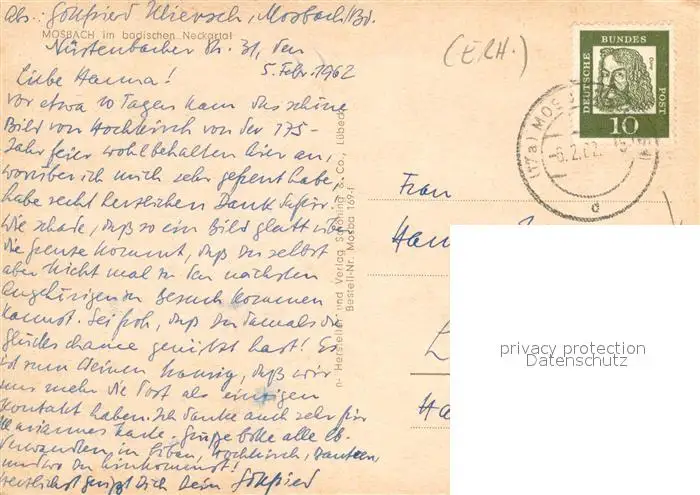 Abs. Gottfried Wiersch, Mosbach/Bd.
MOSBACH im badischen Neckartal
Nüstenbacher Str. 31, den
5. Febr. 1962
Liebe Hanna!
Vor etwa 10 Tagen kam das schöne
Bild von Hochkirch von der 175-
Jahrfeier wohlbehalten hier an,
worüber ich mich sehr gefreut habe,
habe recht herzlichen Dank dafür.
Wie schade, daß so ein Bild glatt über
die Grenze kommt, daß Du selbst
aber nicht mal zu den nächsten
Angehörigen zu Besuch kommen
kannst. Sei froh, daß Du damals die
Glückschance genützt hast! Es
ist zum Weinen traurig, daß wir
nur mehr die Post als einzigen
Kontakt haben. Ich danke auch sehr für
Mariannes Karte. Grüße bitte alle lb.
Verwandten in Löbau, Hochkirch, Bautzen
und wo Du hinkommst!
Herzlichst grüßt Dich Dein Gottfried
n- Hersteller und Verlag Schöning & Co., Lübeck
Bestell-Nr. Mosba 169-f
(ERH.)
DEUTSCHE BUNDES POST
10
(17a) MOSBACH
-6.2.62
d
Frau
privacy protection
Datenschutz